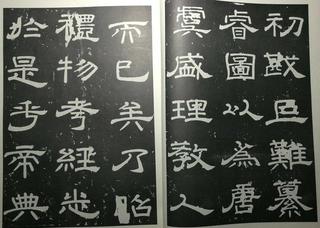 初戡巨難纂
睿圖以為唐
虞盛理教人
而已矣乃詔
禮物考經志
於是乎帝典